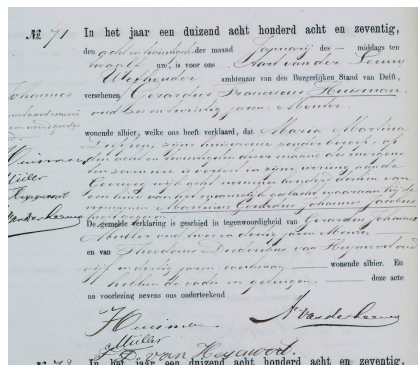 № 71
In het jaar een duizend acht honderd acht en zeventig,
den acht en twintigsten der maand Januarij des middags ten
twaalf ure, is voor ons van der Leeuw
Wethouder ambtenaar van den Burgerlijken Stand van Delft,
verschenen Gerardus Franciscus Huisman
oud zes en twintig jaren,
wonende alhier, welke ons heeft verklaard, dat Maria Martina
zijne huisvrouw zonder beroep, op
den acht en twintigsten dezer maand des morgens
ten zeven ure is bevallen in zijne woning aan de
wijk acht nummer honderd dertien van
een kind van het mannelijk geslacht, waaraan hij de
voornamen Gerardus Johannes Jacobus
heeft gegeven
De gemelde verklaring is geschied in tegenwoordigheid van Gerardus Johannes
Muller oud jaren
en van Theodorus van Heijnoord
vijf en dertig jaren, werkman wonende alhier. En
hebben de vader en getuigen deze acte
na voorlezing nevens ons onderteekend
Huisman
Müller
T. D. van Heijnoord.
A. van der Leeuw
Johannes
Huisman
Müller
van der Leeuw
№ 72 In het jaar een duizend acht honderd acht en zeventig,